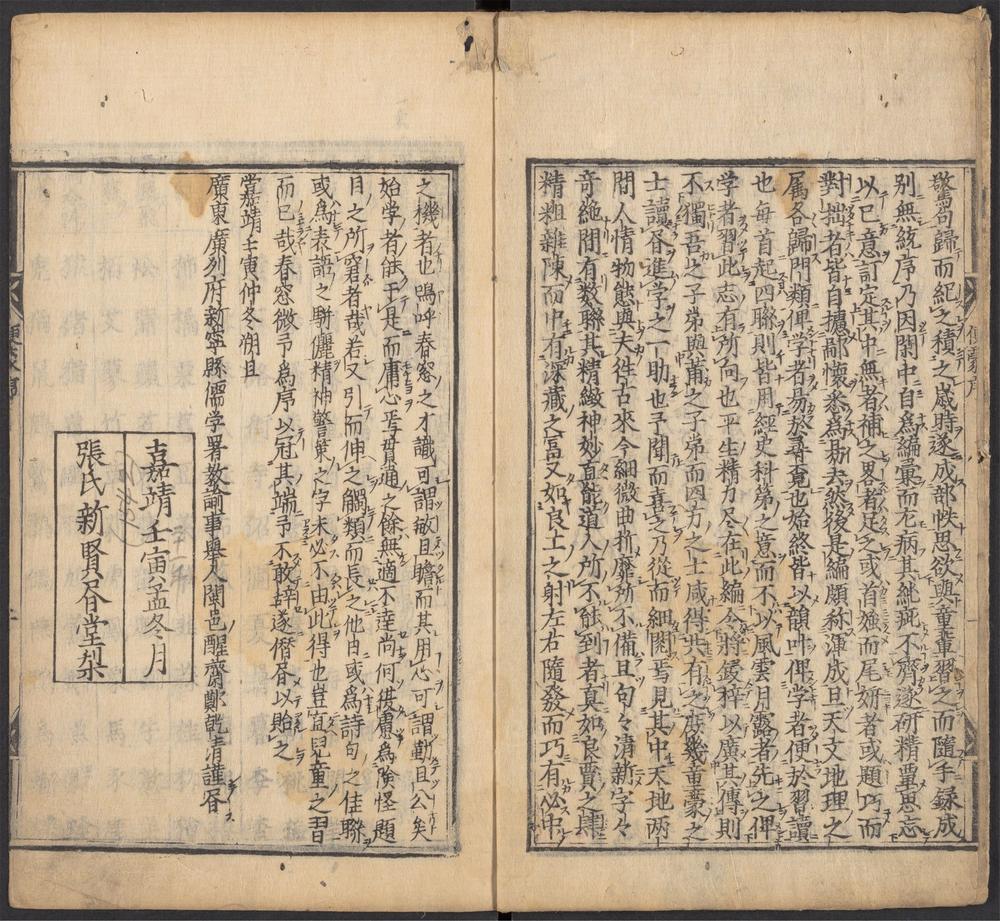 警句歸而紀之積之歲時遂成部帙思欲與童輩習之而隨手録成
别無統序乃因閑中自爲編彙而尤病其純疵不齊遂研精覃思忘
以己意訂定其中無者補之畧者足之或首媸而尾妍者或題巧而
對拙者皆自攄鄙懷悉爲斯去然後是編頗称渾成且天文地理之
属各歸門類俾学者易於尋覔也始終皆以韻叶俾学者便於習讀
也每首起四聯則皆用經史科第之意而不以風雲月露者先之俾
学者習此志有所向也平生精力尽在此編今將鋟梓以廣其傳則
不獨吾之子弟與莆之子弟而四方之士咸得共有之庶幾童蒙之
士讀書進学之一助也予聞而喜之乃從而細閱焉見其中天地两
間人情物態與夫徃古來今細微曲折靡所不備且句々清新字々
奇絶間有数聯其精緻神妙直能道人所不能到者真如良賈之肆
精粗雜陳而中有深藏之冨又如良工之射左右隨發而巧有必中
之機者也嗚呼春窓之才識可謂敏且瞻而其用心可謂勤且公矣
始学者能于是而庸心焉貫通之餘無適不逹尚何供慮爲險怪題
目之所窘者哉若又引而伸之觸類而長之他日或爲詩句之佳聯
或爲表語之駢儷精神警策之字未必不由此得也豈宜兒童之習
而已哉春窓微予爲序以冠其端予不敢辞遂僭書以貽之
嘗嘉靖壬寅仲冬朔旦
廣東廣州府新寧縣儒学署教諭事舉人閩邑醒齋鄭乾清謹書
嘉靖壬寅孟冬月
張氏新賢書堂梨